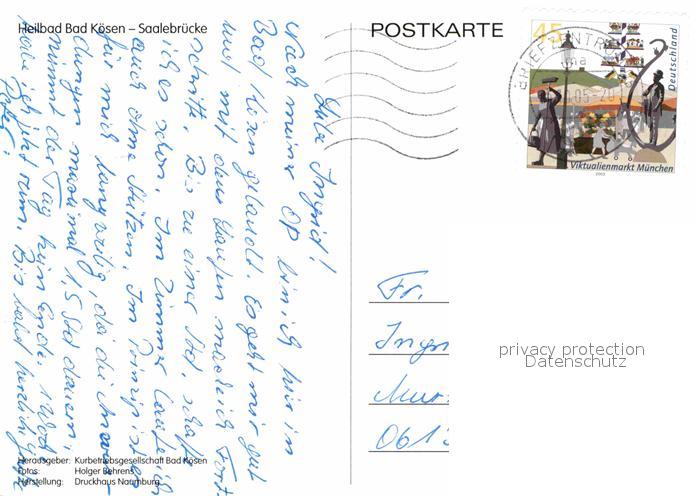 Heilbad Bad Kösen – Saalebrücke
Liebe Ingrid!
Nach meiner OP bin ich hier in
Bad Kösen gelandet. Es geht mir gut
und mit dem Laufen mache ich Fort-
schritte. Bis zu einer Std. schaffe
ich es schon. Im Zimmer laufe ich
auch ohne Stützen. Im Prinzip ist es
für mich langweilig, da die Anwen-
dungen maximal 1,5 Std dauern,
nimmt der Tag kein Ende. 1 Woche
habe ich jetzt rum. Bis bald herzliche Grüße
Peter
Herausgeber: Kurbetriebsgesellschaft Bad Kösen
Fotos: Holger Behrens
Herstellung: Druckhaus Naumburg
POSTKARTE
45
Deutschland
BRIEFZENTRUM
Viktualienmarkt München
2003
Fr.
Ingr
Mur
061
privacy protection
Datenschutz